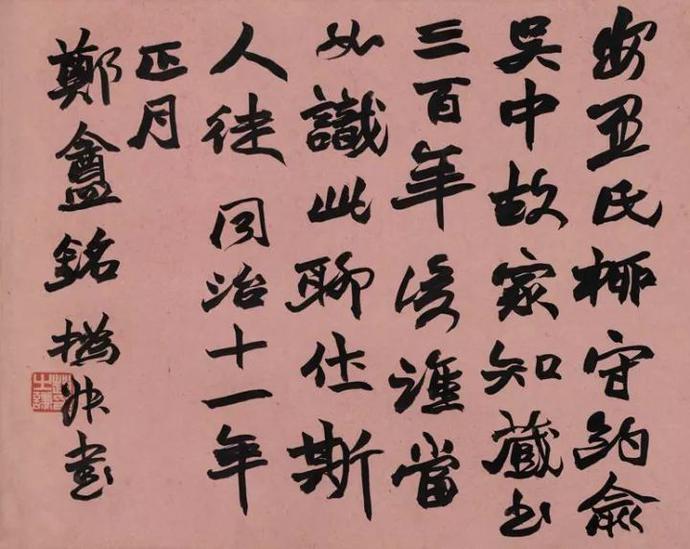 氏柳守約僉
吳中故家知藏書
三百年後誰當
如識此聊仕斯
人徒 同治十一年
正月
鄭盦銘 撝叔書